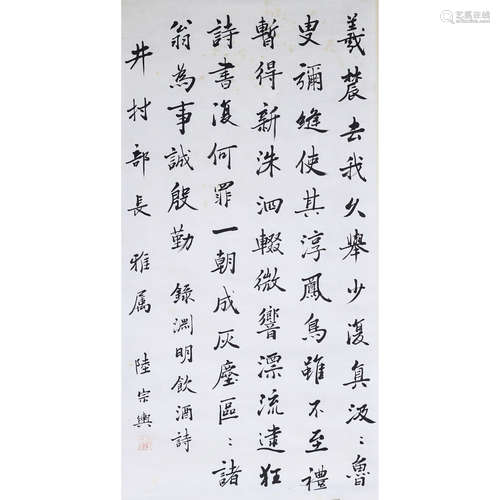 羲農去我久舉少復真汲〻魯
叟彌縫使其淳鳳鳥雖不至禮
暫得新洙泗輟微響漂流逮狂
詩書復何罪一朝成灰塵區〻諸
翁為事誠殷勤 錄淵明飲酒詩
井村部長 雅属 陸宗輿